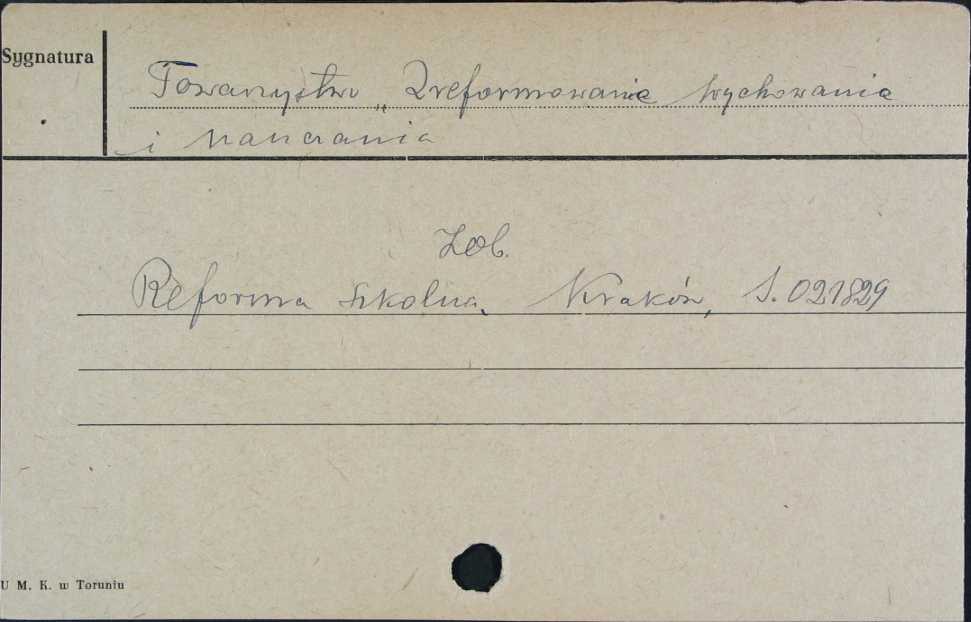 Sygnatura
Towarzystwo „Zreformowanie wychowania
i nauczania
Zob.
Reforma szkolna, Kraków, S. 021829
U M. K. w Toruniu